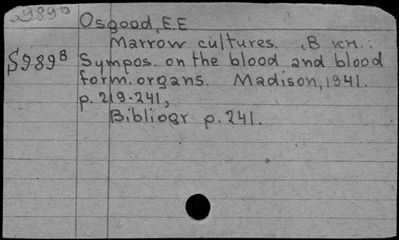 S989B
Osgood, E.E
Marrow cultures. , В кн.:
S989B Sympos. on the blood and blood
form. organs. Madison, 1941.
p. 219-241,
Bibliogr p. 241.